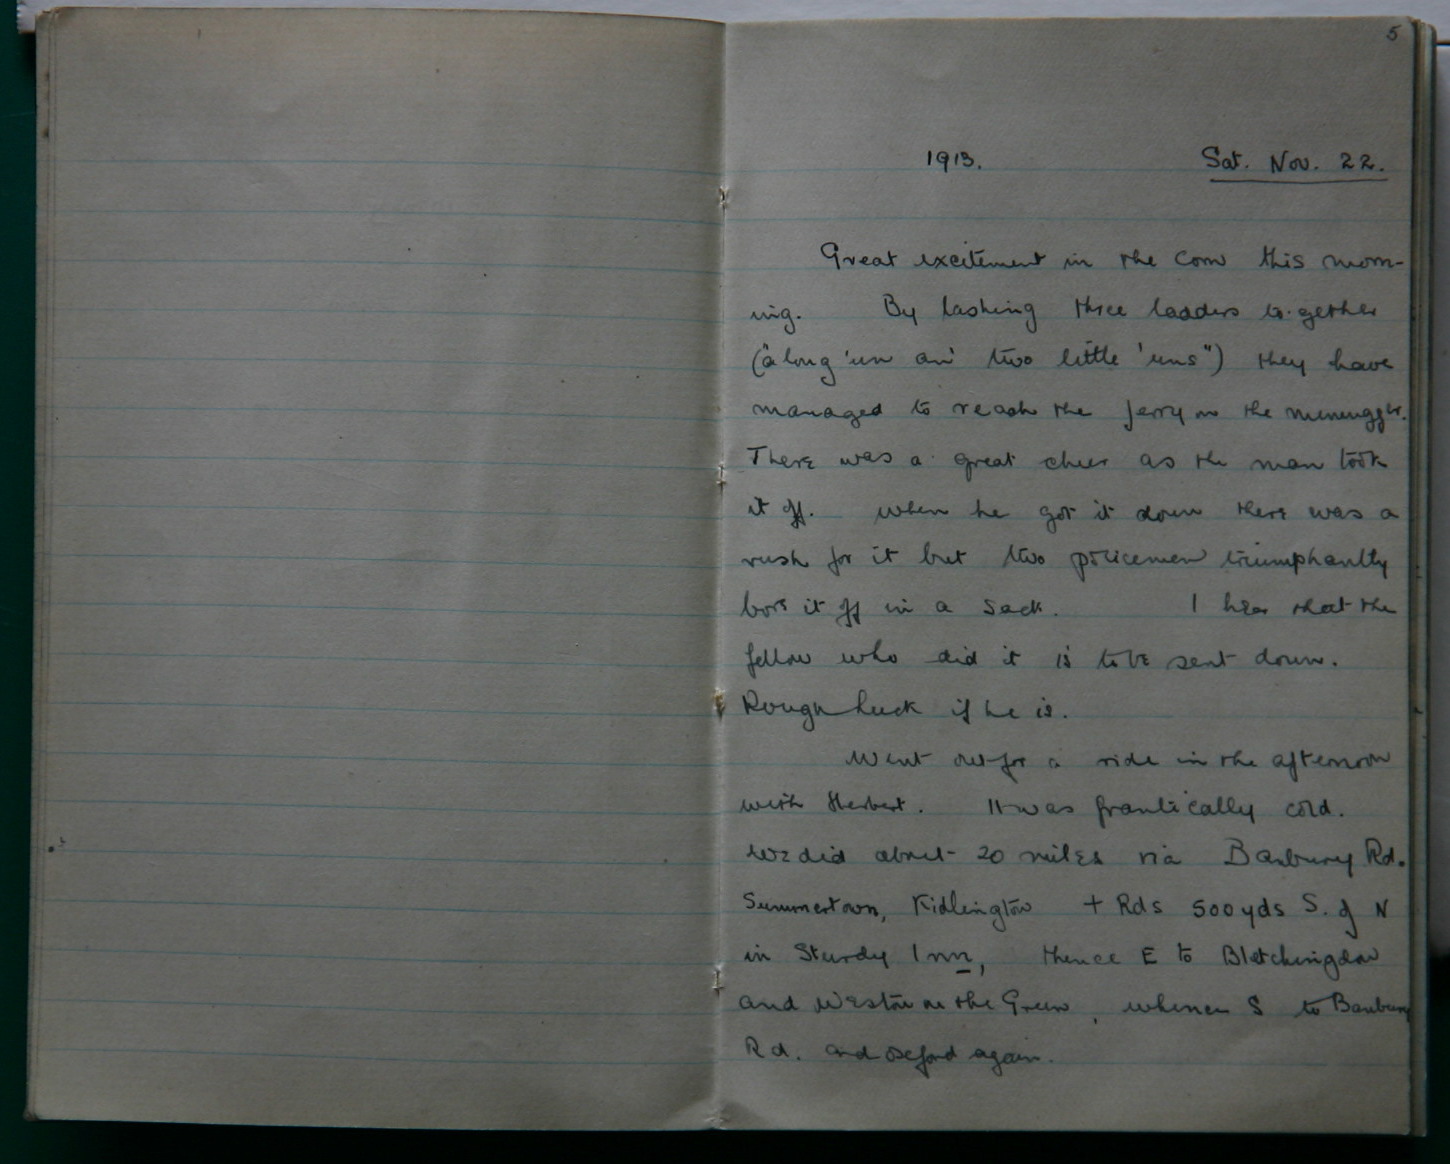 5
1913. Sat. Nov. 22.
Great excitement in the Corn this morn-
ing. By lashing three ladders together
("a long 'un an' two little 'uns") they have
managed to reach the Jerry on the memugger.
There was a great cheer as the man took
it off. When he got it down there was a
rush for it but two policemen triumphantly
bore it off in a sack. I hear that the
fellow who did it is to be sent down.
Rough luck if he is.
Went out for a ride in the afternoon
with Herbert. It was frantically cold.
We did about 20 miles via Banbury Rd.
Summertown, Kidlington + Rds 500 yds S. of N
in Sturdy Inn, thence E to Bletchingdon
and Weston on the Green, whence S to Banbury
Rd. and Oxford again.